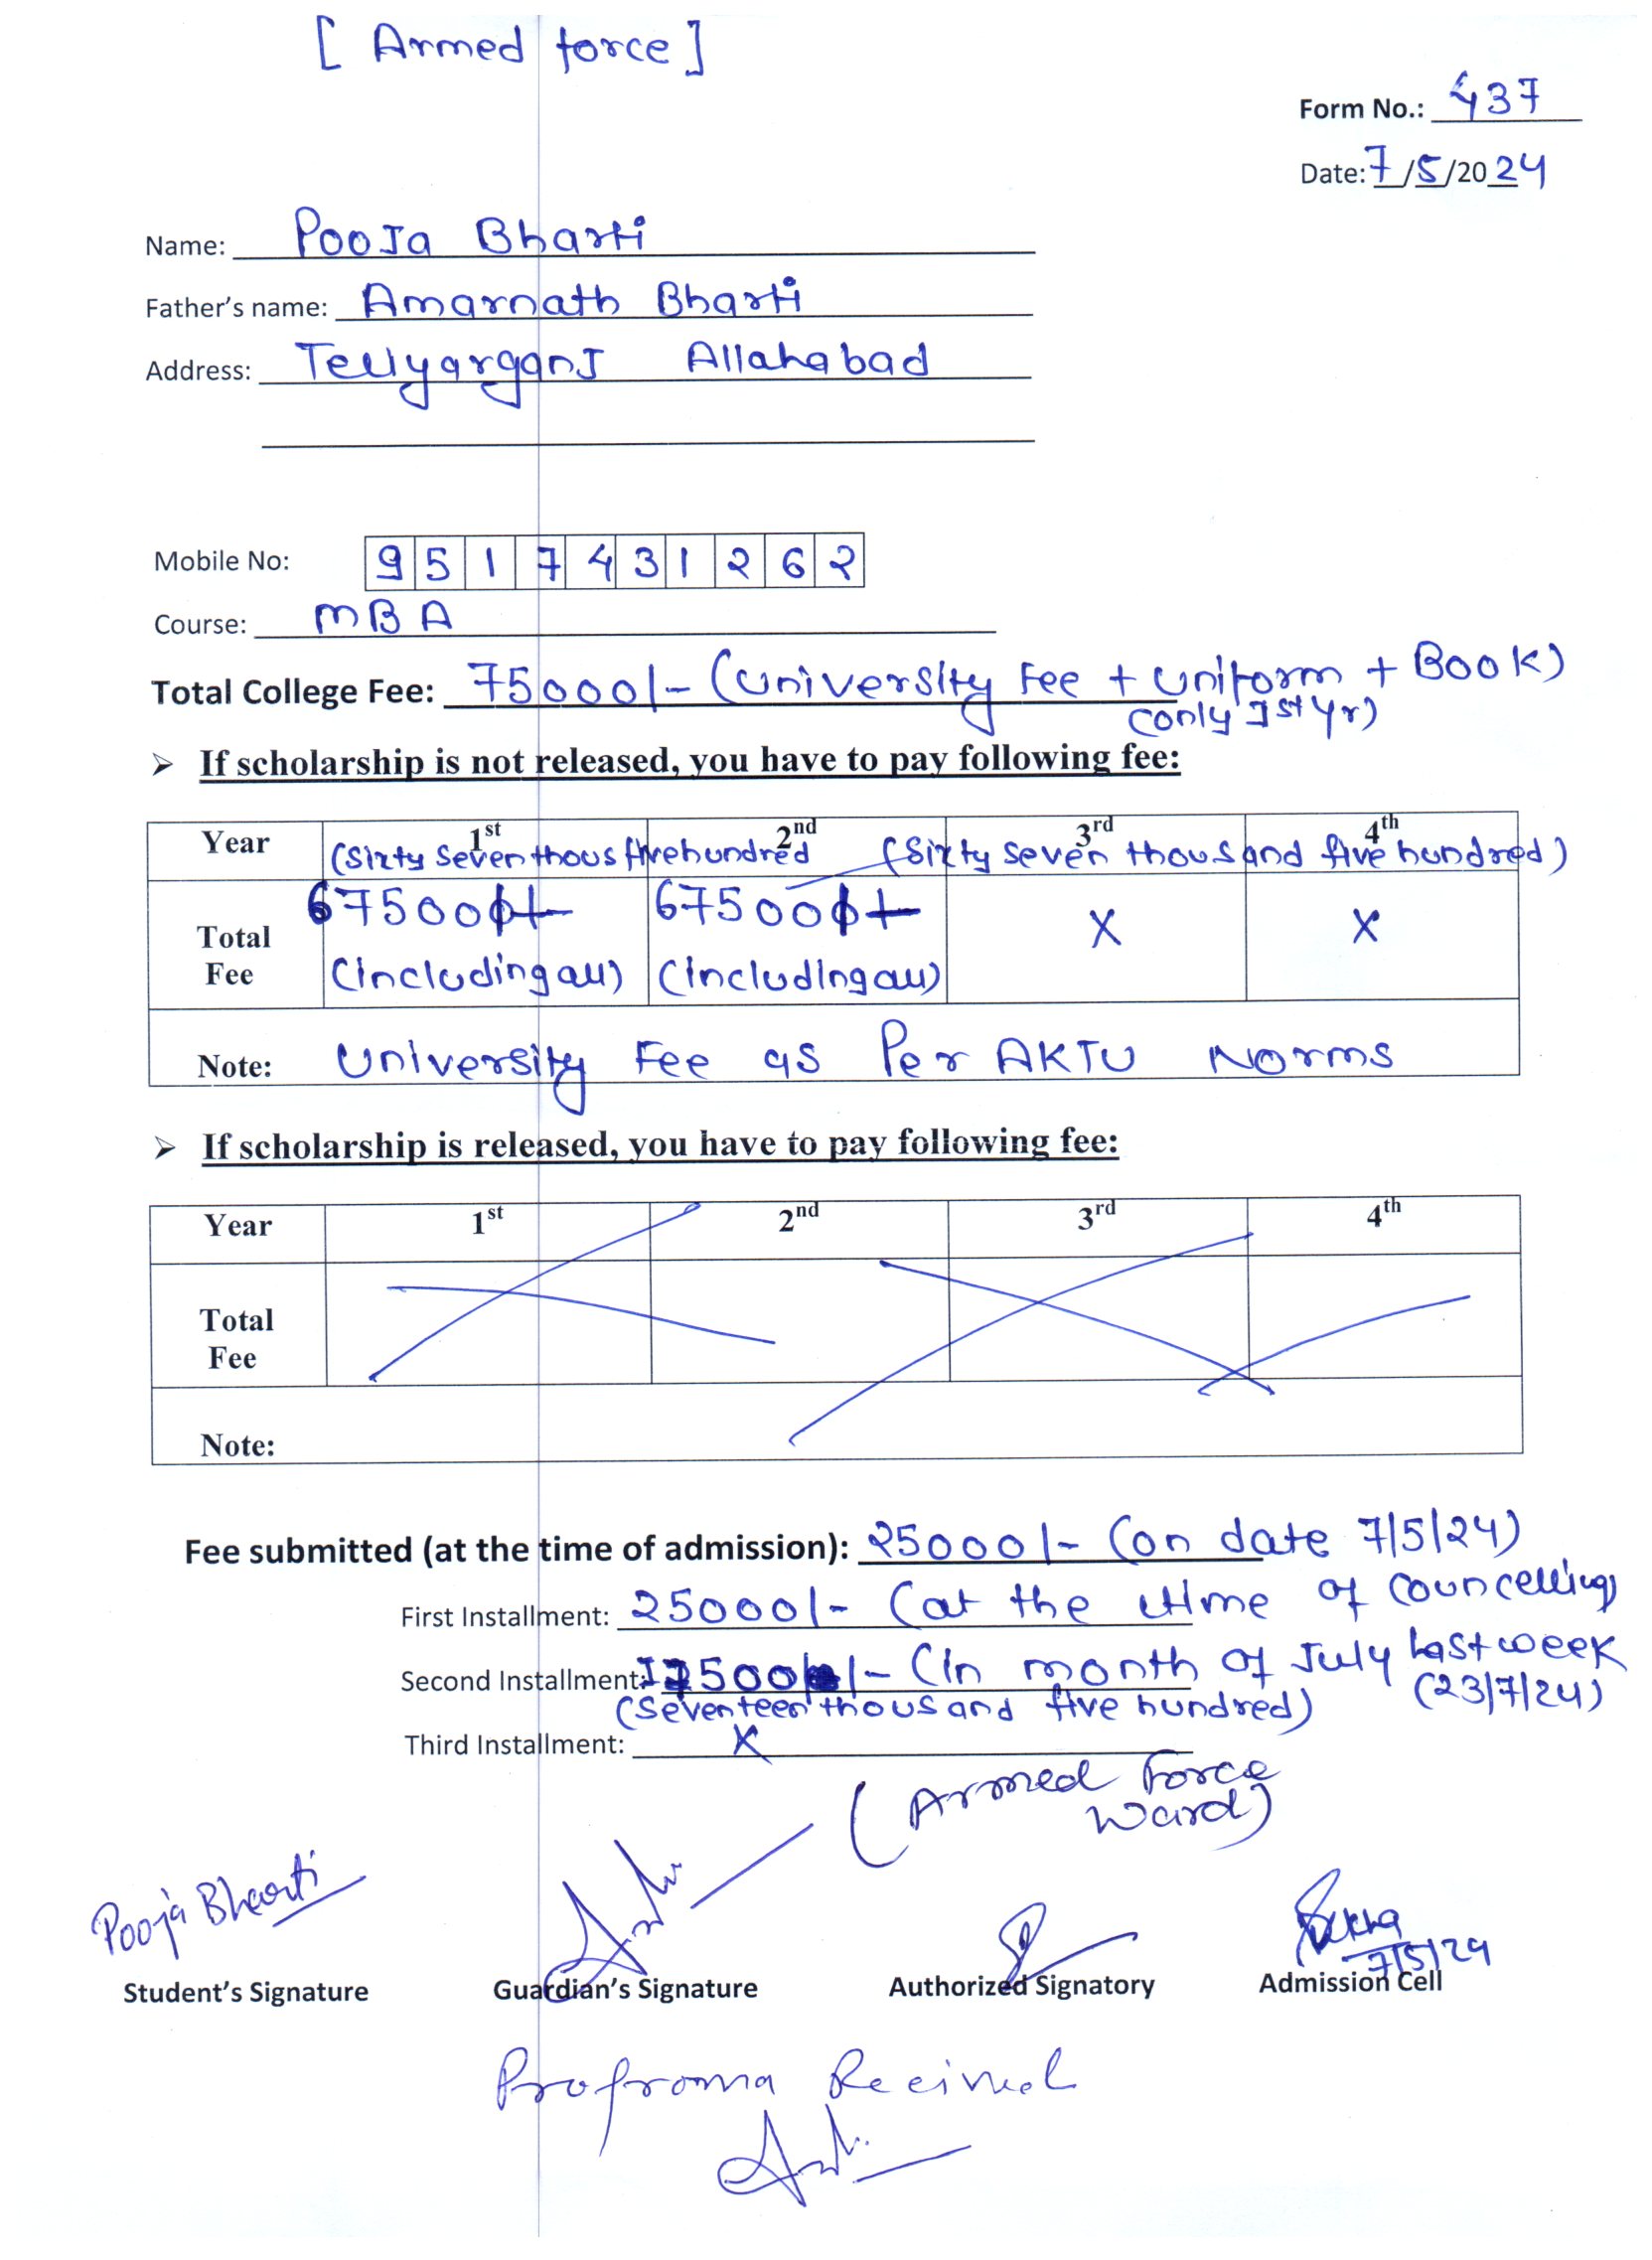 [ Armed force ]
Form No.: 437
Date: 7/5/2024
Name: Pooja Bharti
Father's name: Amarnath Bharti
Address: Teliyarganj Allahabad
Mobile No: 9517431262
Course: MBA
Total College Fee: 75000/- (University Fee + Uniform + Book)
(only Ist Yr)
➢ If scholarship is not released, you have to pay following fee:
Year 1st 2nd 3rd 4th
(Sixty Seven thous five hundred (Sixty seven thousand five hundred)
Total Fee 67500/- 67500/- X X
(Including all) (Including all)
Note: University Fee as Per AKTU Norms
➢ If scholarship is released, you have to pay following fee:
Year 1st 2nd 3rd 4th
Total Fee
Note:
Fee submitted (at the time of admission): 25000/- (on date 7/5/24)
First Installment: 25000/- (at the time of councelling)
Second Installment: 17500/- (In month of July last week
(Seventeen thousand five hundred) (23/7/24)
Third Installment: X
(Armed Force
Ward)
Pooja Bharti
7/5/24
Student's Signature Guardian's Signature Authorized Signatory Admission Cell
Profroma Recived